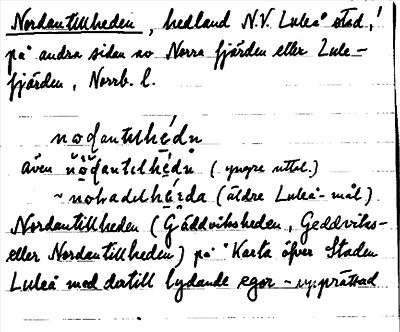 Nordantillheden, hedland N.V. Luleå stad,
på andra sidan av Norra fjärden eller Lule-
fjärden, Norrb. l.
nodantɩlhédn
även nodantɩlhédn (yngre uttal.)
~ noladɩlhéda (äldre Luleå-mål)
Nordantillheden (Gäddviksheden, Geddviks-
eller Nordantillheden) på "Karta öfver Staden
Luleå med dertill lydande egor - upprättad